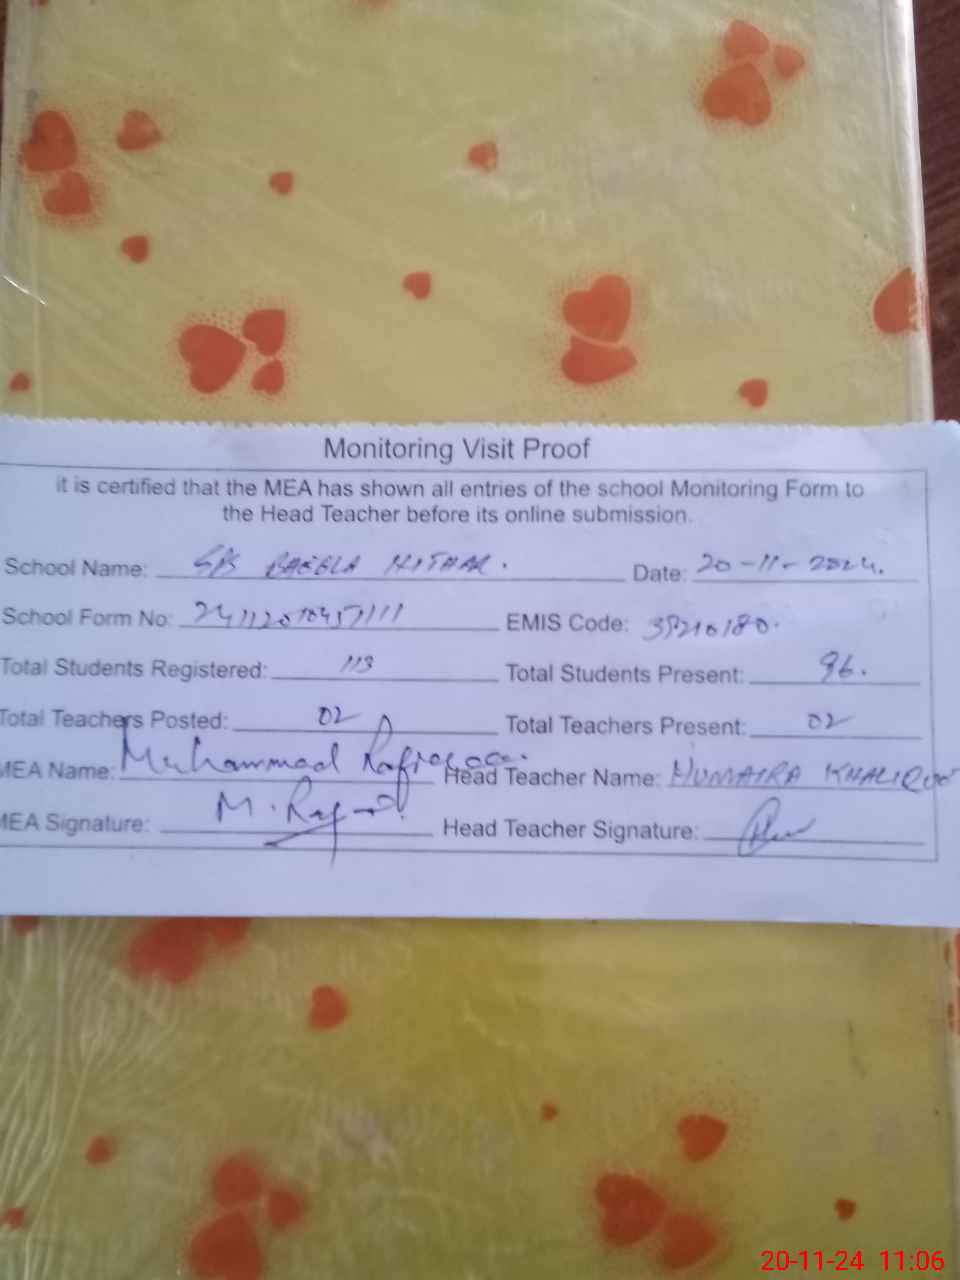 Monitoring Visit Proof
it is certified that the MEA has shown all entries of the school Monitoring Form to
the Head Teacher before its online submission.
School Name: Date: 20-11-2024.
School Form No: EMIS Code:
Total Students Registered: 113 Total Students Present: 96.
Total Teachers Posted: 02 Total Teachers Present: 02
MEA Name: Muhammad Head Teacher Name: HUMAIRA
MEA Signature: Head Teacher Signature:
20-11-24 11:06